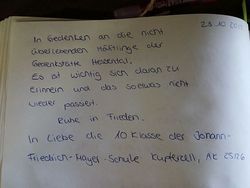 23.10.20
In Gedenken an die nicht
überlebenden Häftlinge der
Gedenkstätte Hessental.
Es ist wichtig sich daran zu
Erinnern und das soetwas nicht
wieder passiert.
Ruhe in Frieden.
In Liebe die 10 Klasse der Johann-
Friedrich-Mayer-Schule Kupferzell, AK 25/26